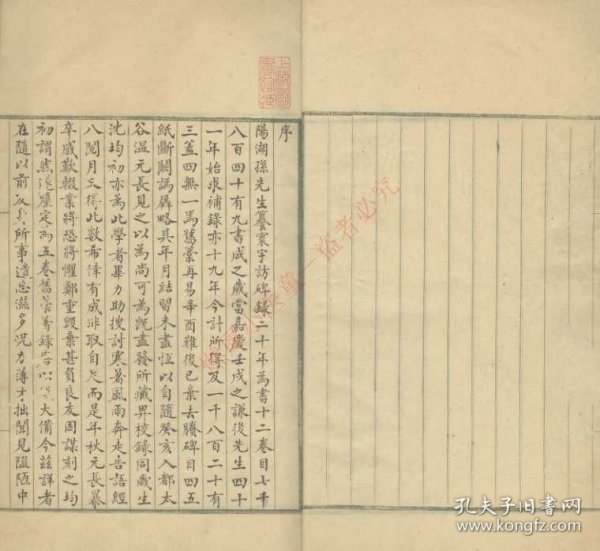 序
陽湖孫先生纂寰宇訪碑錄二十年為書十二卷目七千
八百四十有九書成之歲當嘉慶壬戌之謙後先生四十
一年始求補錄亦十九年今計所得及一千八百二十有
三蓋四無一焉舊藁再易辛酉難後已棄去賸碑目四五
紙斷闕譌舛略具年月結習未盡恆以自隨癸亥入都太
谷溫元長見之以為尚可為旣盡發所藏畀校錄同歲生
沈均初亦為此學者畢力助搜討寒暑風雨奔走告語經
八閱月又得此數希倖有成非取自足而是年秋元長暴
卒感歎輟業將恐將懼鄭重毀棄甚負良友因謀刻之均
初謂然遂釐定為五卷舊 大備今茲詳者
在隨以前 所事遺忘滋多況力薄才拙聞見隘陋中
孔夫子旧书网
www.kongfz.com